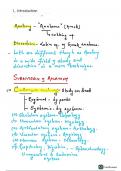 1. Introduction
Anatomy - "Anatome" (Greek)
Cutting up
Dissection - Cutting up of Greek
Both are different though as Anatomy is a wide field of study and dissection is a mere technique.
Subdivisions of Anatomy
(1) Cadaveric anatomy - Study on dead
Regional - by parts
Systemic - by systems
(1) Skeleton system - Osteology
(2) Muscular system - Myology
(3) Articulation system - Arthrology
(4) Vascular system - Angiology
(5) Nervous system - Neurology
(6) Respiratory, Digestive, - Splanchnology
Urogenital & Endocrine system